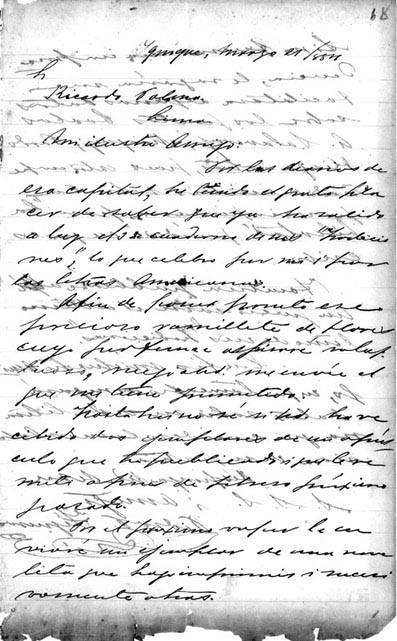 68
Iquique, marzo 21/1884
Sr
Ricardo Palma.
Lima
Mi ilustre Amigo:
Por los diarios de
esa capital, he tenido el grato pla
cer de saber que ya ha salido
a luz el 3er cuaderno de sus "Tradicio
nes", lo que celebro por Ud i por
las letras Americanas.
Afin de gozar pronto ese
precioso ramillete de flores
cuyo perfume aspiraré
ruego a Ud. me envíe el
que me tiene prometido.
Hasta hoi no sé si Ud. ha re
cibido dos ejemplares de un opús
culo que he publicado i que le re
mití a fines de febrero próximo
pasado.
Por el próximo vapor le en
viaré un ejemplar de una nove
lita que hago imprimir i sucesi
vamente otras.